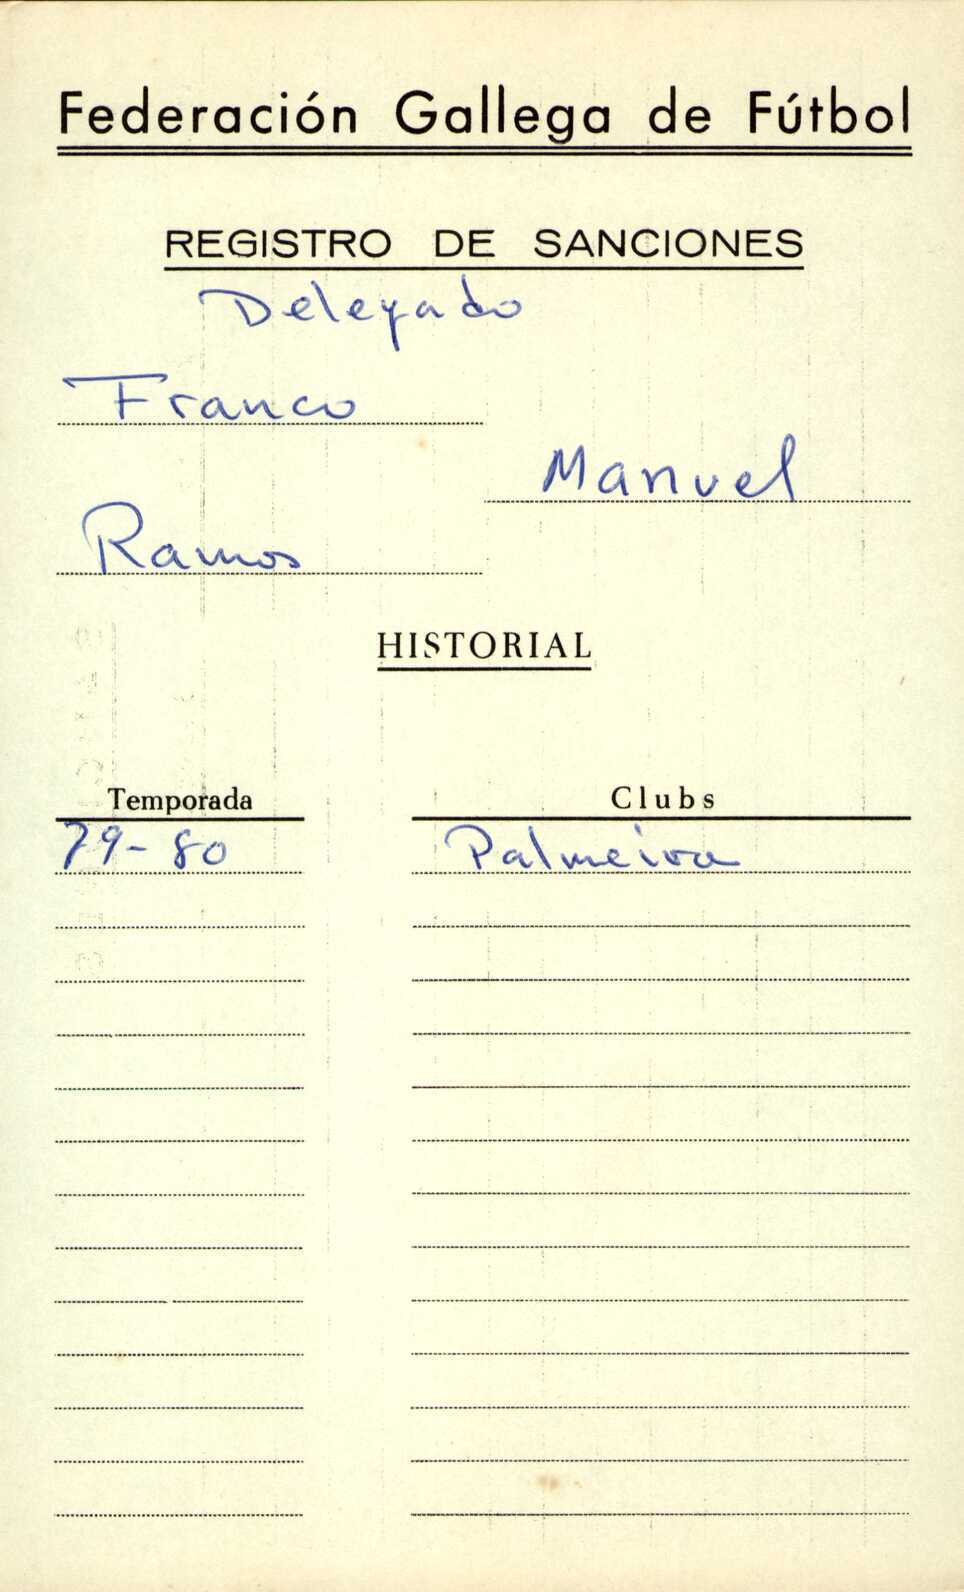 Federación Gallega de Fútbol
REGISTRO DE SANCIONES
Delegado
Franco
Manuel
Ramos
HISTORIAL
Temporada Clubs
79-80 Palmeira